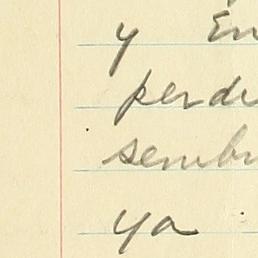 y En
perd
semb
ya